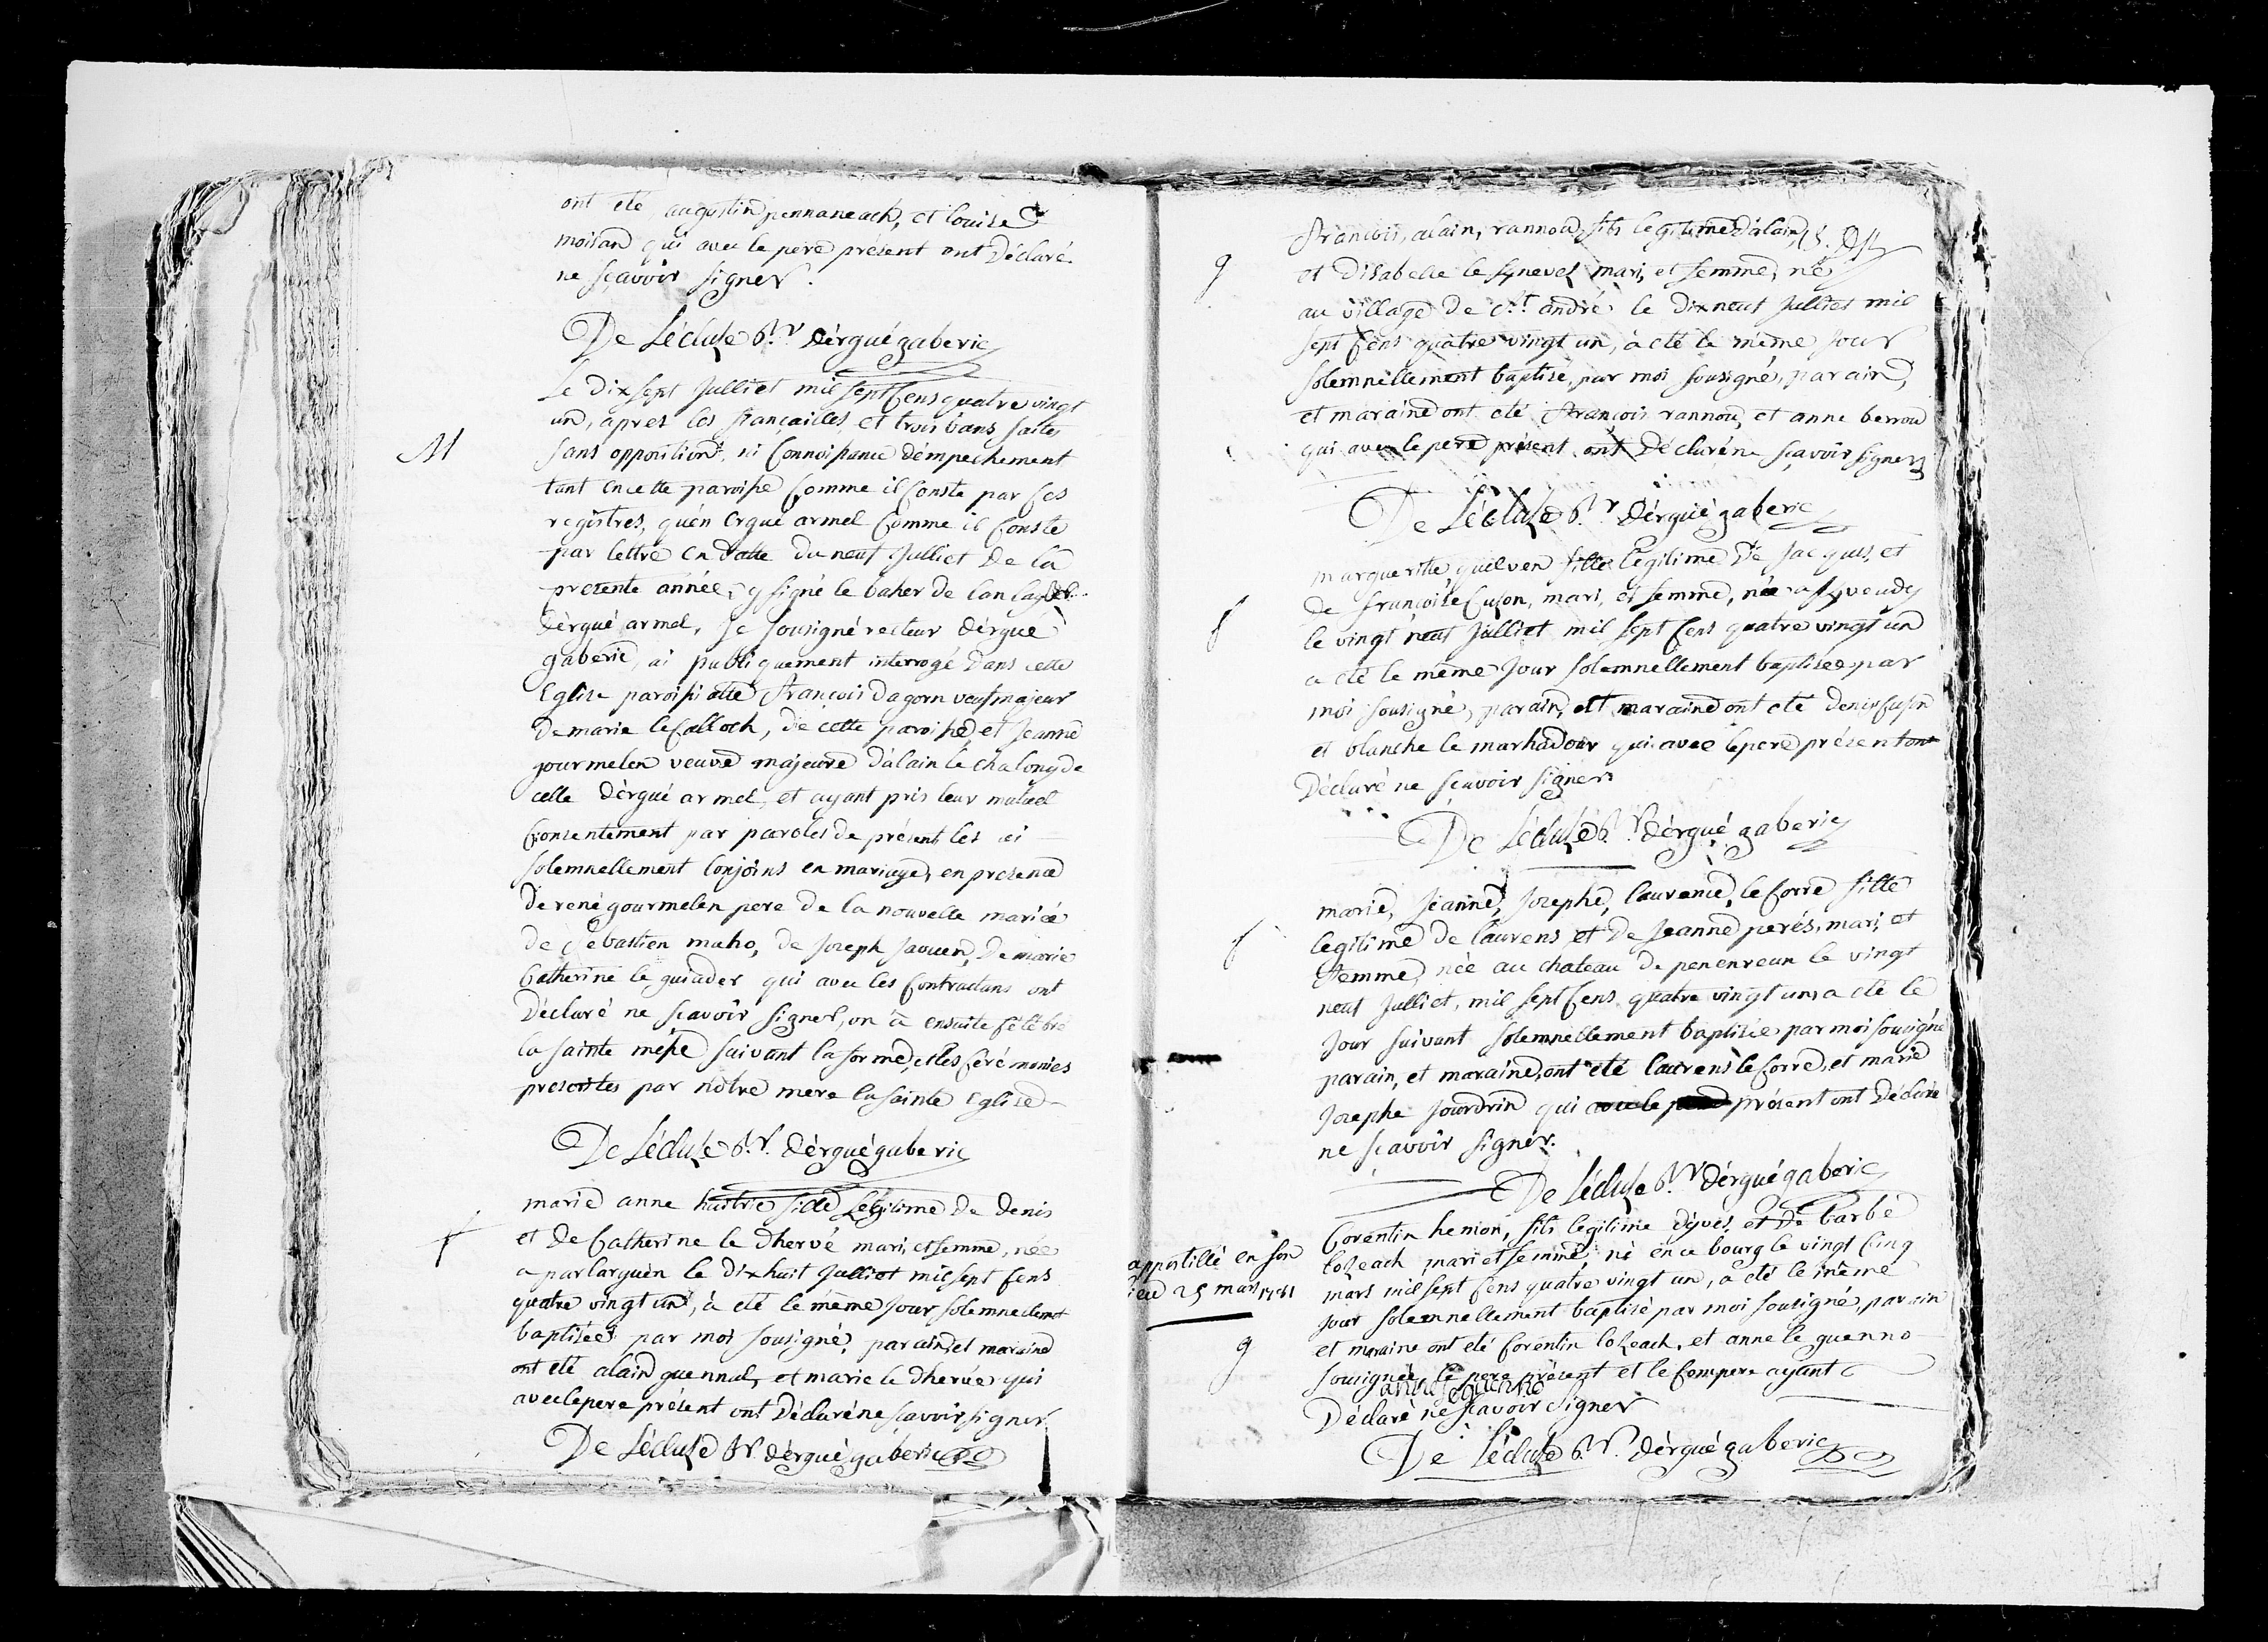 ont eté augustin pennaneach, et louise
moisan qui avec le pere présent ont déclaré
ne sçavoir signer.
De Lécluse Rr. dérgué gaberic
Le dix sept Julliet mil sept cens quatre vingt
un, apres les fiançailles et trois bans faites
sans opposition, ni connoissance d'émpechement
tant en cette paroisse comme il conste par ces
registres, qu'én ergué armel comme il conste
par lettre en datte du neuf Julliet de la
presente année, signé le baher de
dérgué armel, Je sousigné recteur dérgué
gaberic, ai publiquement interrogé dans cette
Eglise paroissialle françois dagorn veuf majeur
de marie le calloch, de cette paroisse, et Jeanne
gourmelen veuve majeure d'alain le chalony de
celle dérgué armel, et ayant pris leur mutuel
consentement par paroles de présent les ai
solemnellement conjoins en mariage, en presence
de rené gourmelen pere de la nouvelle mariée
de sebastien maho, de Joseph Jaouen, de marie
Catherine le guiader qui avec les contractans ont
déclaré ne sçavoir signer, on a ensuite célébré
la sainte messe suivant la forme, et les cérémonies
prescrites par nôtre mere la sainte Eglise
De Lécluse Rr. dérgué gaberic
M
marie anne huitric fille legitime de denis
et de Catherine le dhervé mari, et femme, née
a parlarguén le dix huit Julliet mil sept cens
quatre vingt un, à eté le même jour solemnellemt
baptisée par moi sousigné, parain, et maraine
ont eté alain guennal, et marie le dhervé qui
avec le pere présent ont déclaré ne sçavoir signer
De Lécluse Rr. dérgué gaberic
f
françois, alain, rannou, fils legitime d'alain,
et d'isabelle le mari, et femme, né
au village de st. andré le dix neuf Julliet mil
sept cens quatre vingt un, à eté le même jour
solemnellement baptisé, par moi sousigné, parain,
et maraine ont eté françois rannou, et anne berrou
qui avec le pere présent ont déclaré ne sçavoir signer
De Lécluse Rr. dérgué gaberic
g
margueritte, quilven fille legitime de Jacques, et
de françoise Cuson, mari, et femme, née a
le vingt neuf Julliet mil sept cens quatre vingt un
a eté le même jour solemnellement baptisée par
moi sousigné, parain, et maraine ont eté denis Cuson
et blanche le marhadour qui avec le pere présent ont
déclaré ne sçavoir signer
De Lécluse Rr. dérgué gaberic
f
marie, Jeanne, Josephe, laurence, le corre fille
legitime de laurens et de Jeanne perés, mari, et
femme, née au chateau de penenreun le vingt
neuf Julliet, mil sept cens quatre vingt un, a eté le
jour suivant solemnellement baptisée par moi sousigné
parain, et maraine, ont eté laurens le corre, et marie
Josephe Jourdrin qui avec le pere présent ont déclaré
ne sçavoir signer.
De Lécluse Rr. dérgué gaberic
f
Corentin hemon, fils legitime d'yves, et de barbe
lozeach mari et femme, né en ce bourg le vingt cinq
mars mil sept cens quatre vingt un, a eté le même
jour solemnellement baptisé par moi sousigné, parain
et maraine ont eté corentin lozeach, et anne le guenno
sousignée, le pere présent et le compere ayant
anne le guenno
déclaré ne sçavoir signer
De Lécluse Rr. dérgué gaberic
appostillé en son
lieu 25 mars 1781
g